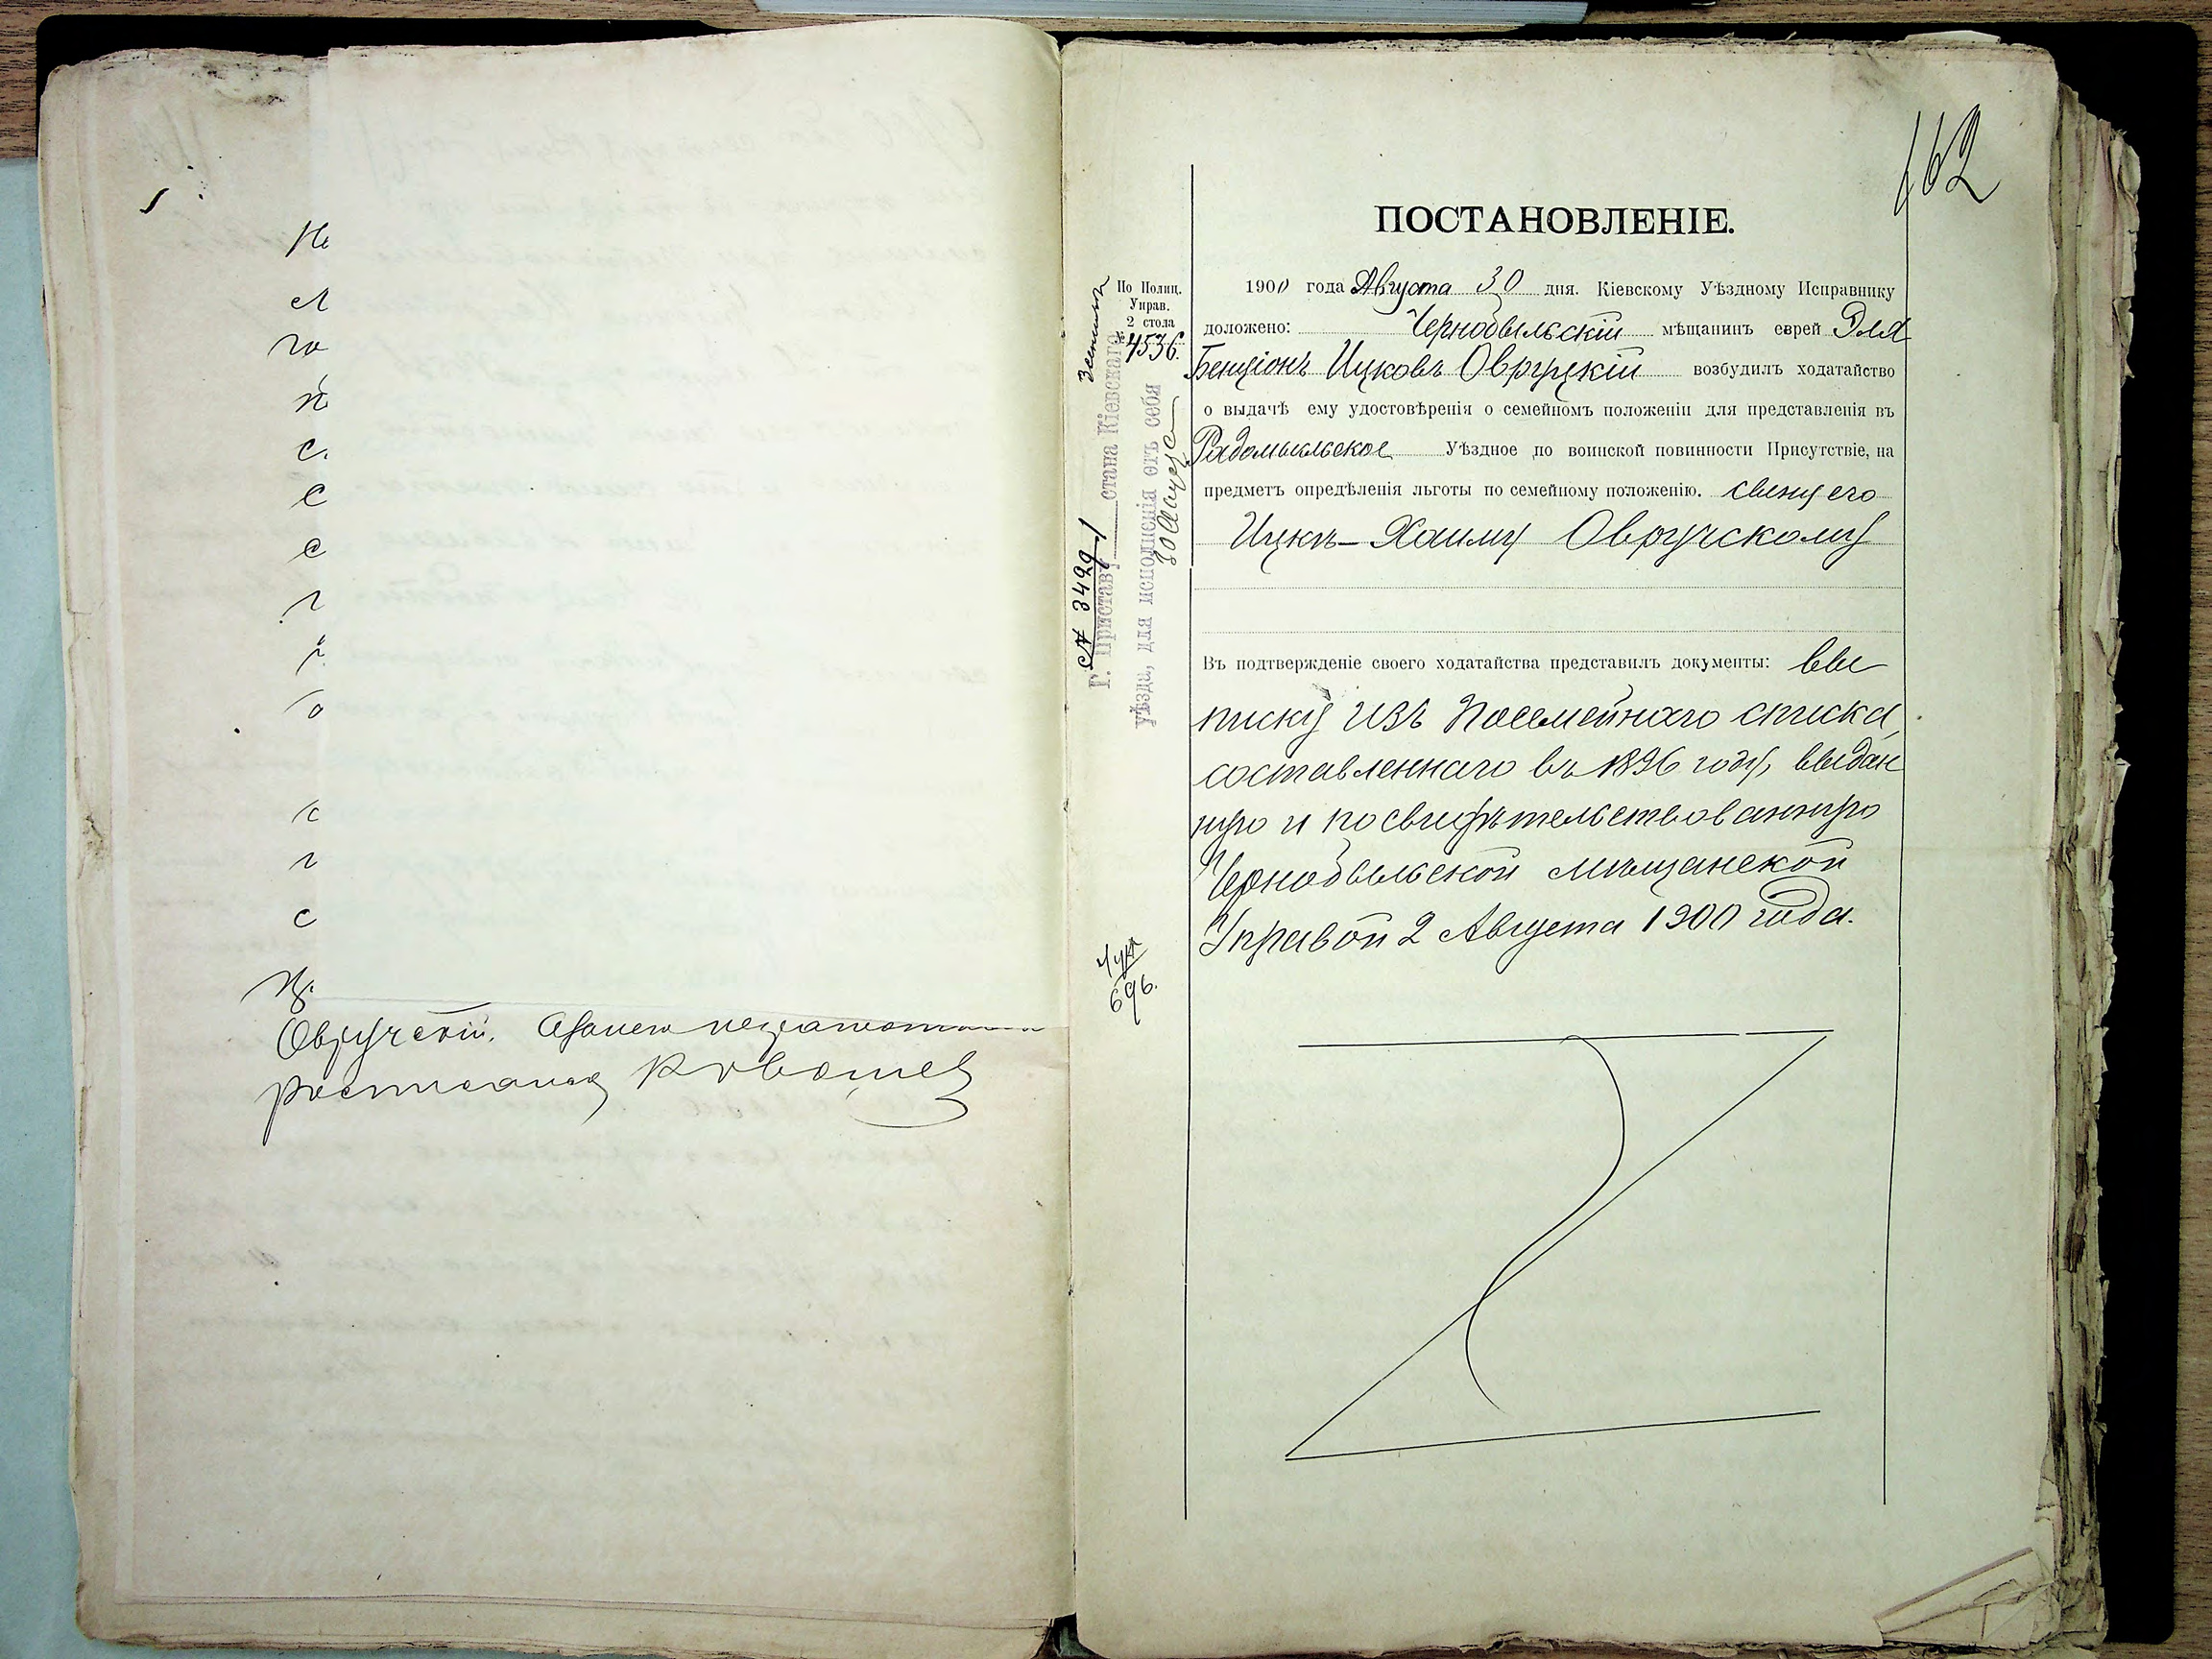 Овручскій.
162
ПОСТАНОВЛЕНІЕ.
По Полиц.
Управ.
2 стола
№ 4536.
№ 3499
Г. Приставу стана Кіевскаго
уѣзда, для исполненія отъ себя
696.
1900 года Августа 30 дня. Кіевскому Уѣздному Исправнику
доложено: Чернобыльскій мѣщанинъ еврей Эля
Бенціонъ Ицковъ Овручскій возбудилъ ходатайство
о выдачѣ ему удостовѣренія о семейномъ положеніи для представленія въ
Радомысльское Уѣздное по воинской повинности Присутствіе, на
предметъ опредѣленія льготы по семейному положенію. сыну его
Ицкъ-Хаиму Овручскому
Въ подтвержденіе своего ходатайства представилъ документы: вы
писку изъ Посемейнаго списка,
составленнаго въ 1896 году, выдан
ную и посвидѣтельствованную
Чернобыльской мѣщанской
Управой 2 Августа 1900 года.